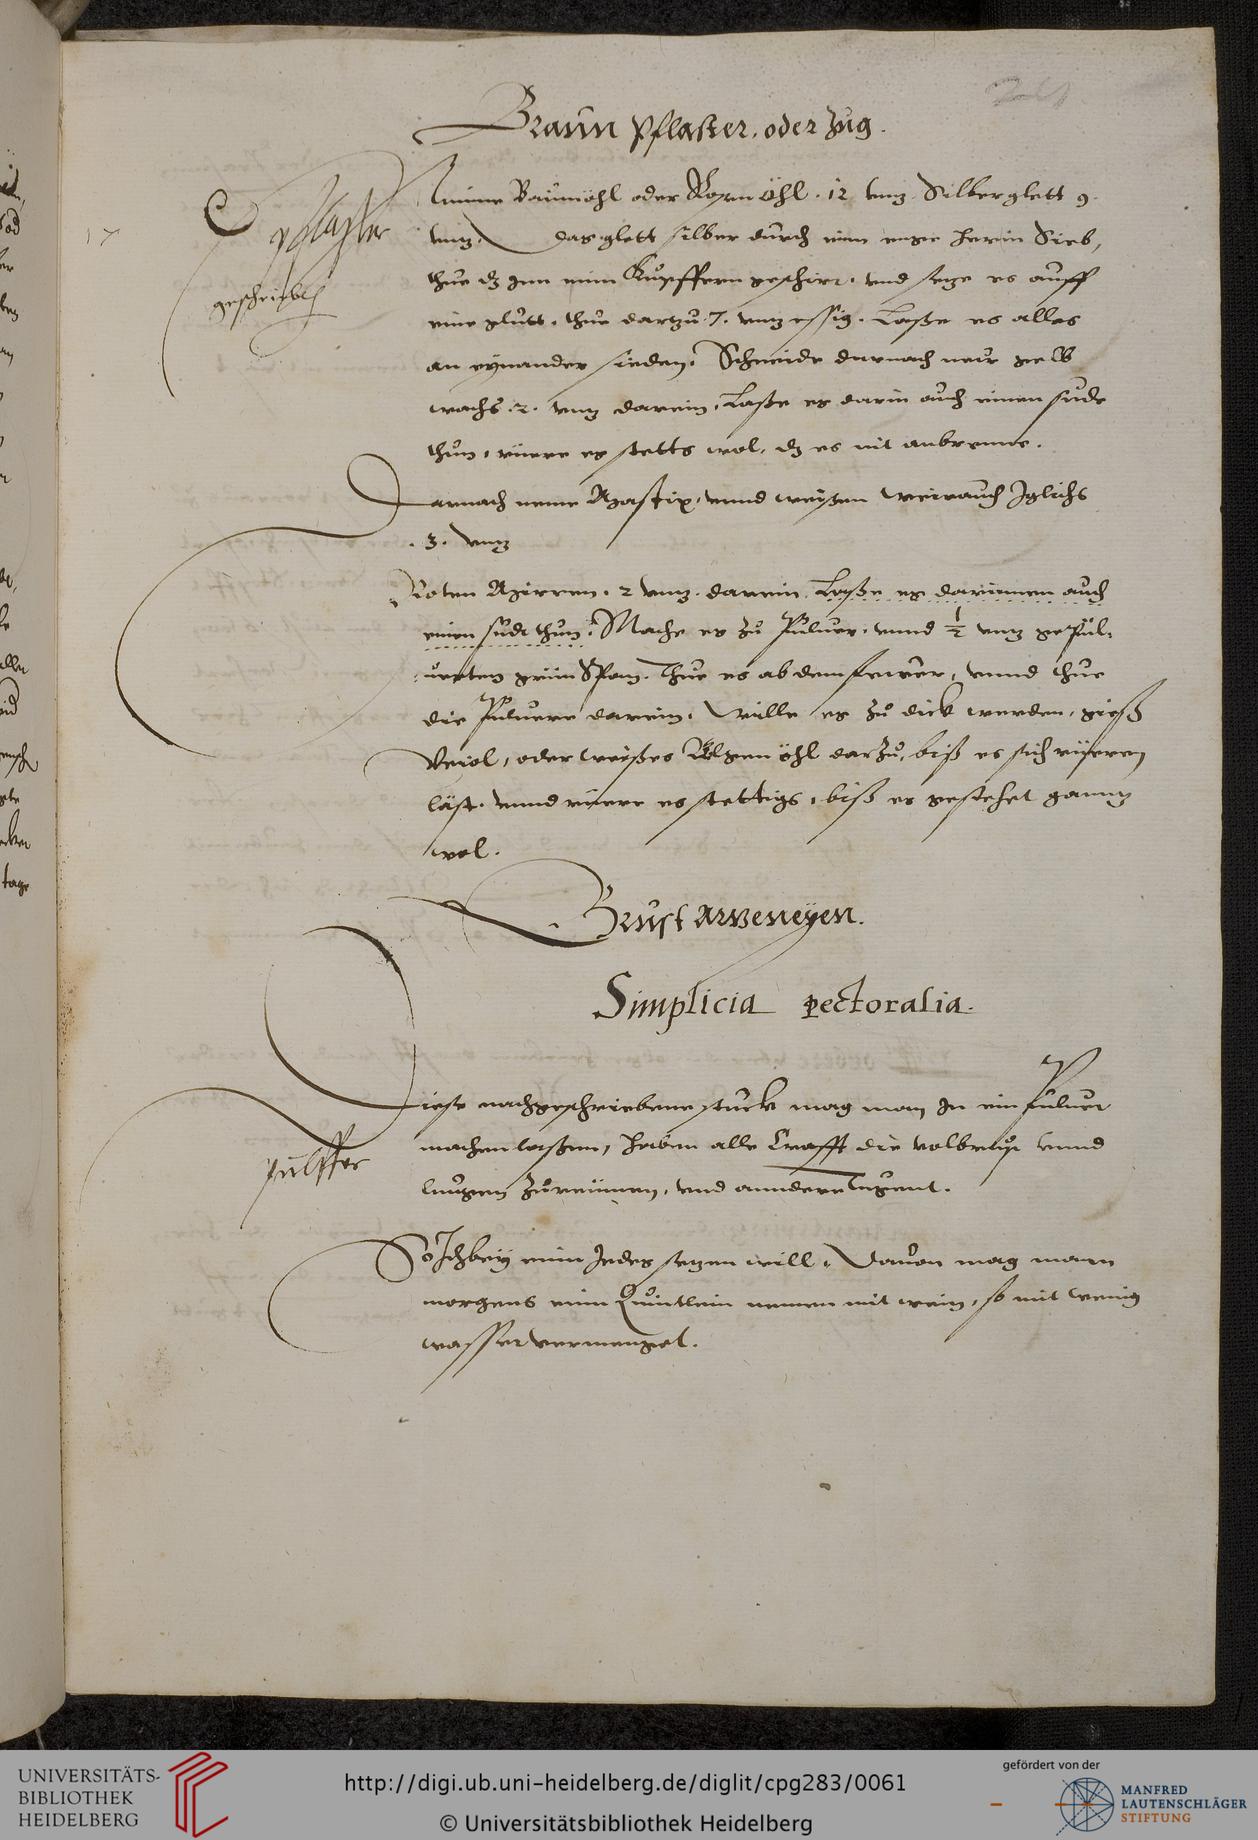 Braun Pflaster. oder Zug.
Nimme Baumöhl oder Rosen öhl. 12 untz. Silberglett 9.
untz. das glett silber durch ein enge herin Sieb,
thue dz Inn einn Kupffern geschirr. vnd setze es auff
eine glutt. thue dartzu 7. untz essig. Laße es alles
an eynander sieden. Schneide darnach new gelb
wachs. 2. untz darein, Laße es darin auch einen sude
thun, rüere es stetts wol, dz es nit anbrenne.
Darnach neme Mastix, vnnd weyßen weirauch Iglichs
. 3. untz
Roten Mirren. 2 untz. darein. Laße es darinnen auch
einen sudt thun. Mache es zu Puluer, vnnd ½ untz gepul-
uerten grün Span. Thue es ab dem fewer, vnnd thue
die Puluere darein. Wille es zu dick werden, gieß
Veiol, oder weißes Ilgen öhl darzu, biß es sich rüeren
läst. vnnd rüere es stettigs, biß es gestehet gantz
wol.
Pflaster
geschrieben
Brust artzeneyen.
Simplicia pectoralia.
Diese nachgeschriebene stuck mag man In ein Puluer
machen laßen, haben alle Crafft die vol brust vnnd
lungen zu reumen, vnd anndere tugent.
Pulffer
So Ich bey einn Jedes setzen will. Dauon mag mann
morgens einn Quintlein nemen mit wein, so mit wenig
wasser vermenget.
UNIVERSITÄTS-
BIBLIOTHEK
HEIDELBERG
http://digi.ub.uni-heidelberg.de/diglit/cpg283/0061
© Universitätsbibliothek Heidelberg
gefördert von der
MANFRED
LAUTENSCHLÄGER
STIFTUNG